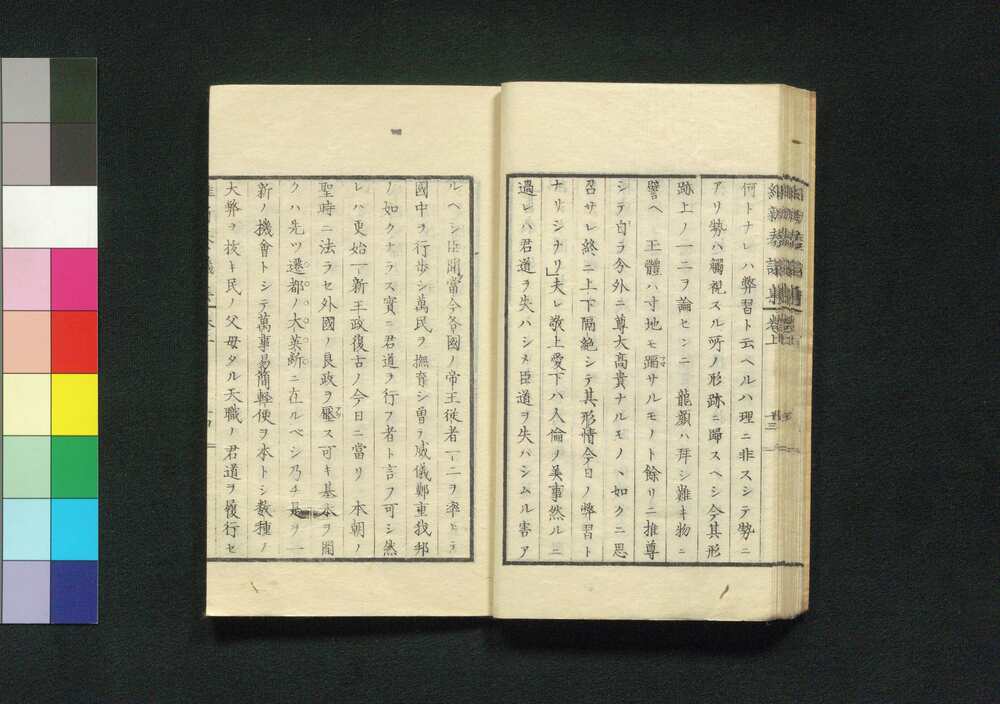 何トナレハ弊習ト云ヘルハ理ニ非スシテ勢ニ
アリ勢ハ觸視スル所ノ形跡ニ歸スヘシ今其形
跡上ノ一二ヲ論センニ 龍顏ハ拜シ難キ物ニ
譬ヘ 玉體ハ寸地モ蹈サルモノト餘リニ推尊
シテ自ラ分外ニ尊大高貴ナルモノヽ如クニ思
召サレ終ニ上下隔絶シテ其形情今日ノ弊習ト
ナリシナリ」夫レ敬上愛下ハ人倫ノ美事然ルニ
過レハ君道ヲ失ハシメ臣道ヲ失ハシムル害ア
ルヘシ臣聞當今各國ノ帝王從者一二ヲ率ヒテ
國中ヲ行歩シ萬民ヲ撫育シ曾テ威儀鄭重我邦
ノ如クナラス實ニ君道ヲ行フ者ト言フ可シ然
レハ更始一新王政復古ノ今日ニ當リ 本朝ノ
聖時ニ法ラセ外國ノ良政ヲ壓ス可キ基本ヲ開
クハ先ツ遷都ノ大英斷ニ在ルベシ乃チ是ヲ一
新ノ機會トシテ萬事易簡輕便ヲ本トシ數種ノ
大弊ヲ抜キ民ノ父母タル天職ノ君道ヲ履行セ
卷上